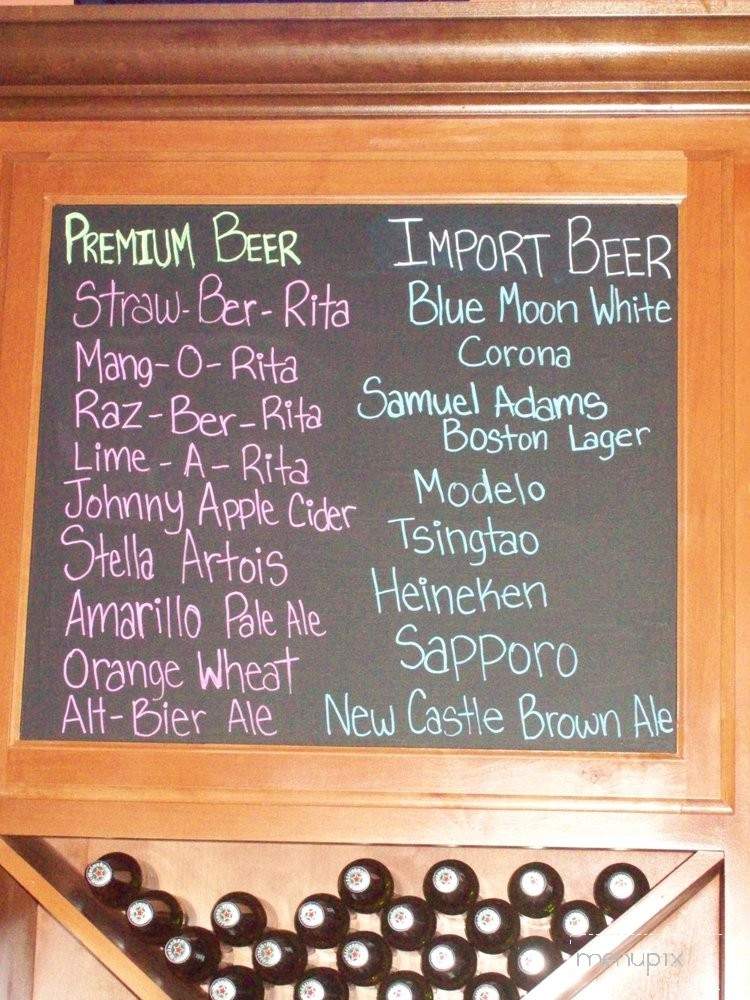 PREMIUM BEER
Straw-Ber-Rita
Mang-O-Rita
Raz-Ber-Rita
Lime-A-Rita
Johnny Apple Cider
Stella Artois
Amarillo Pale Ale
Orange Wheat
Alt-Bier Ale
IMPORT BEER
Blue Moon White
Corona
Samuel Adams
Boston Lager
Modelo
Tsingtao
Heineken
Sapporo
New Castle Brown Ale
menupix